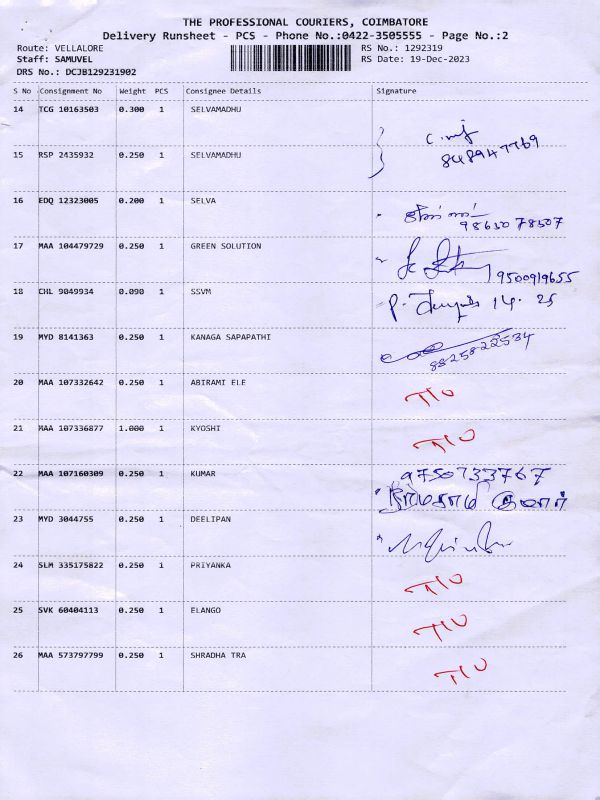 THE PROFESSIONAL COURIERS, COIMBATORE
Delivery Runsheet - PCS - Phone No.:0422-3505555 - Page No.:2
Route: VELLALORE RS No.: 1292319
Staff: SAMUVEL RS Date: 19-Dec-2023
DRS No.: DCJB129231902
S No Consignment No Weight PCS Consignee Details Signature
14 TCG 10163503 0.300 1 SELVAMADHU
848947769
15 RSP 2435932 0.250 1 SELVAMADHU
16 EDQ 12323005 0.200 1 SELVA
9865078507
17 MAA 104479729 0.250 1 GREEN SOLUTION
9500919655
18 CHL 9049934 0.090 1 SSVM
19 MYD 8141363 0.250 1 KANAGA SAPAPATHI
8825822534
20 MAA 107332642 0.250 1 ABIRAMI ELE
21 MAA 107336877 1.000 1 KYOSHI
22 MAA 107160309 0.250 1 KUMAR 9750733767
23 MYD 3044755 0.250 1 DEELIPAN
24 SLM 335175822 0.250 1 PRIYANKA
25 SVK 60404113 0.250 1 ELANGO
26 MAA 573797799 0.250 1 SHRADHA TRA